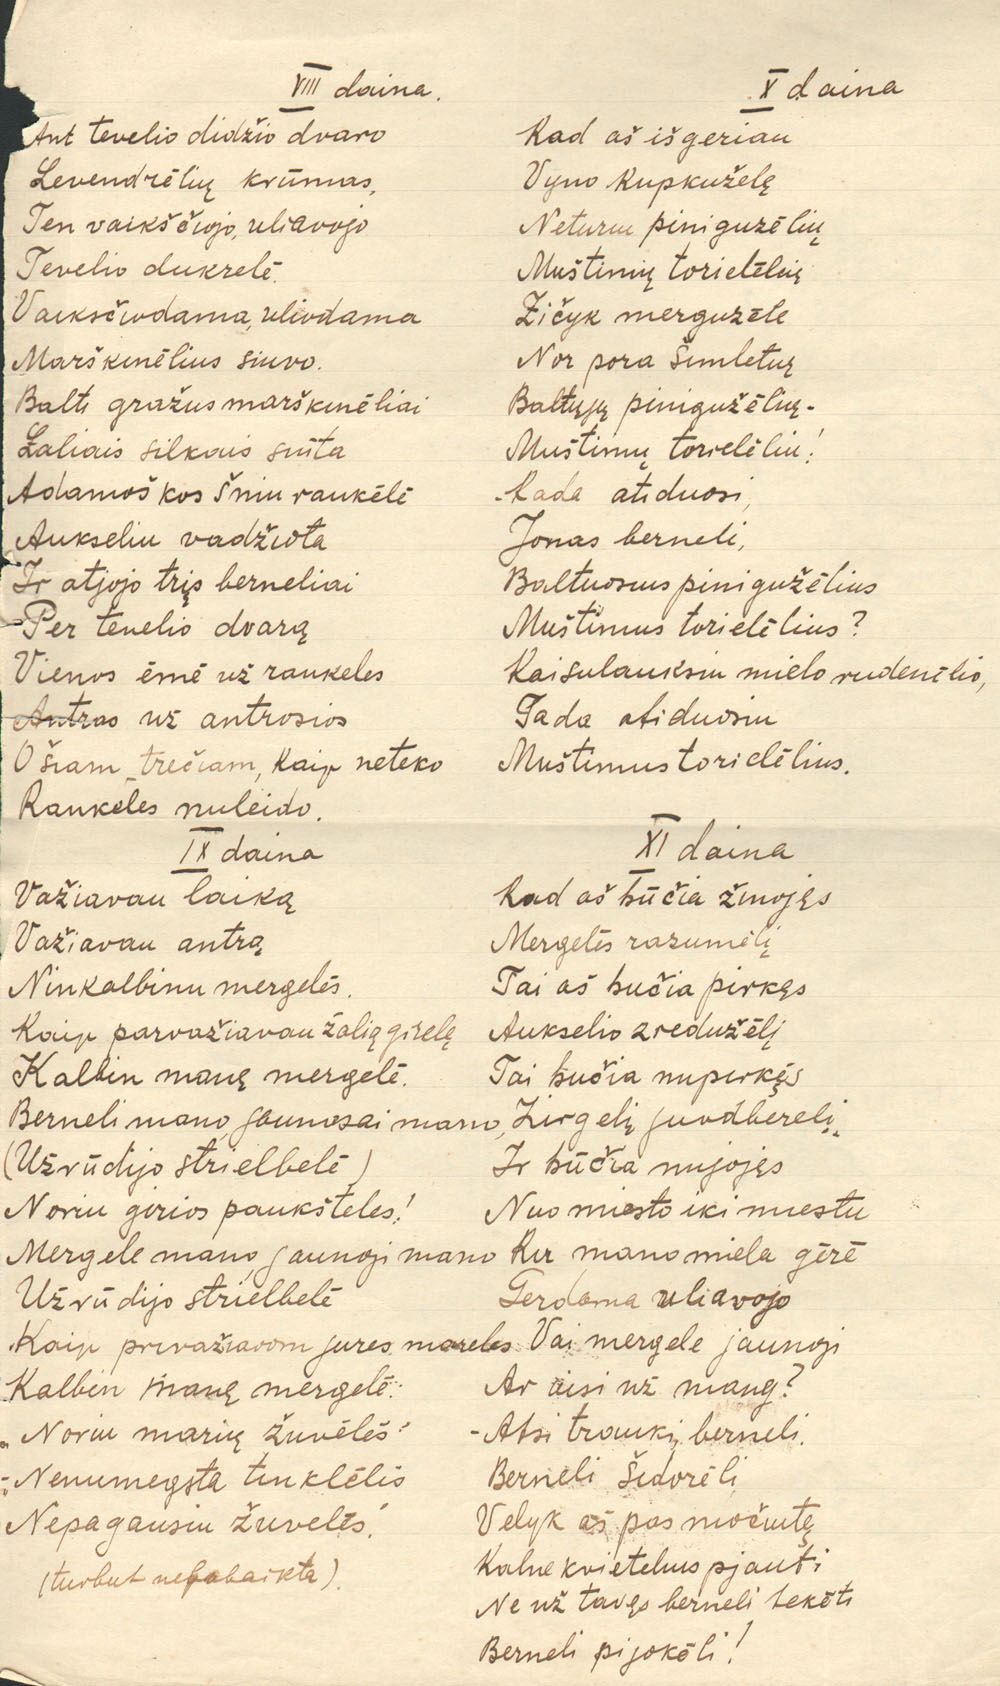 VIII daina.
Ant tevelio didžio dvaro
Levendrėlių krūmas,
Ten vaikščiojo, uliavojo
Tevelio dukrelė.
Vaiksčiodama, uliodama
Marškinėlius siuvo.
Balti gražus marškinėliai
Žaliais silkais siūta
Adamoškos šniuraukėlė
Aukseliu vadžiota
Ir atjojo trįs berneliai
Per tevelio dvarą
Vienos ėmė už rankeles
Antras už antrosios
O šiam trečiam, kaip neteko
Rankeles nuleido.
IX daina
Važiavau laiką
Važiavau antrą
Ninkalbinu mergelės.
Kaip parvažiavau žalią girelę
Kalbin manę mergelė.
Berneli mano, jaunasai mano,
(Užrūdijo strielbelė)
Noriu girios paukšteles!
Mergele mano, jaunoji mano
Užrūdijo strielbelė
Kaip privažiavom jures mareles
Kalbin manę mergelė:
„Noriu marių žuvėlės"
-Nenumegsta tinklėlis
Nepagausiu žuvelės!
(turbut nepabaikta).
X daina
Kad aš išgeriau
Vyno kupkuželę
Neturiu piniguzėlių
Muštinių torielėlių
Žičyk merguzėle
Nor pora šimletų
Baltųjų pinigužėlių-
Muštinių torielėliu!
-Kada atiduosi,
Jonas berneli,
Baltuosius pinigužėlius
Muštinius torielėlius?
Kai sulauksiu mielo rudenėlio,
Tada atiduosiu
Muštinius torielėlius.
XI daina
Kad aš būčia žinojęs
Mergelės razumėlį
Tai aš bučia pirkęs
Aukselio zredužėlį
Tai bučia nupirkęs
Žirgelį juodberelį
Ir būčia nujojęs
Nuo miesto iki miestu
Kur mano miela gėrė
Gerdama uliavojo
Vai mergele jaunoji
Ar aisi už manę?
-Atsi traukį berneli.
Berneli šidorėli
Velyk aš pas močiutę
Kalne kvietelius pjauti
Ne už tavęs berneli tekėti
Berneli pijokėli!